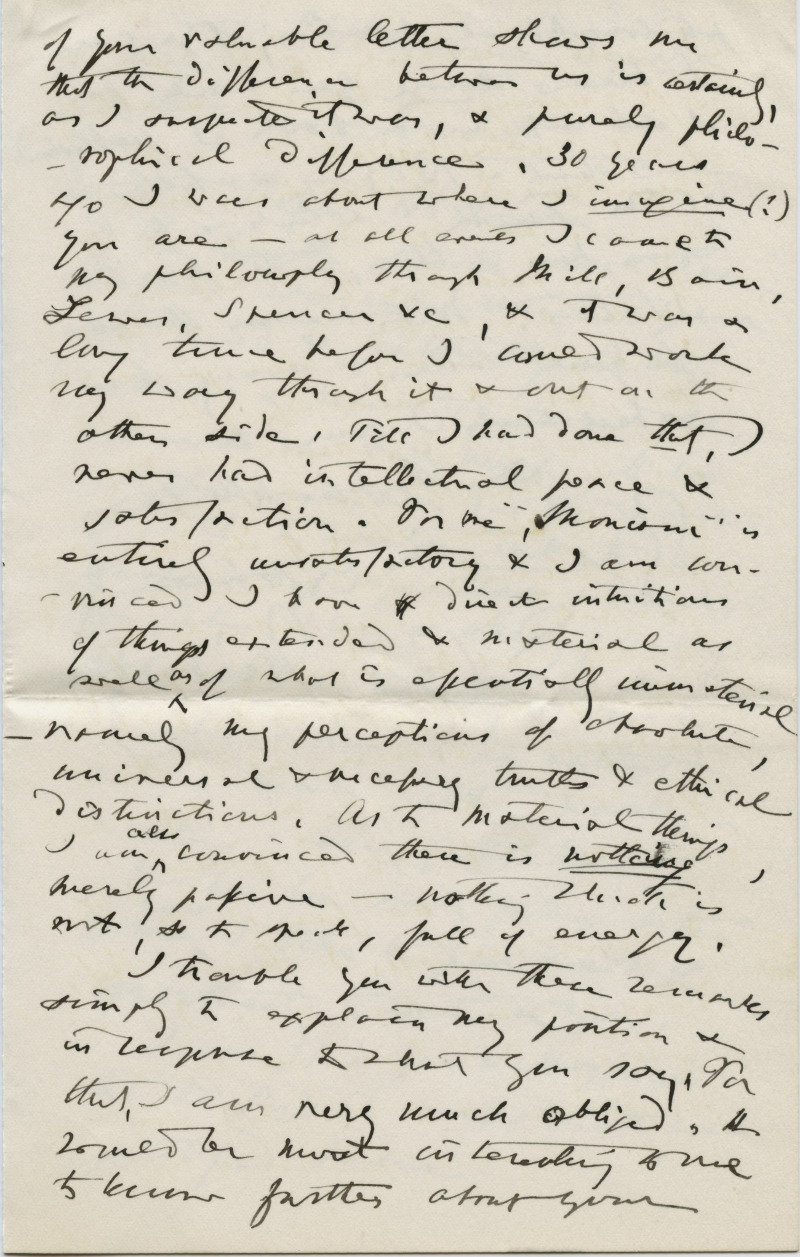 of your valuable letter shows me
that the difference between us is certainly,
as I suspected it was, a purely philo-
-sophical difference. 30 years
ago I was about where I imagine (?)
you are — at all events I came to
my philosophy through Mill, Bain,
Lewes, Spencer &c, & it was a
long time before I could work
my way through it & out on the
other side. Till I had done that, I
never had intellectual peace &
satisfaction. For me "Monism" is
entirely unsatisfactory & I am con-
-vinced I have direct intuitions
of things extended & material as
well as of what is essentially immaterial
— namely my perceptions of absolute,
universal & necessary truths & ethical
distinctions. As to material things,
I am also convinced there is nothing
merely passive — nothing which is
not, so to speak, full of energy.
I trouble you with these remarks
simply to explain my position &
in response to what you say. For
that, I am very much obliged. It
would be most interesting to me
to know further about your